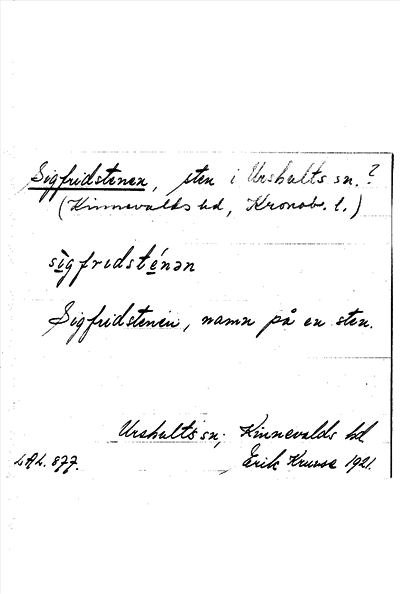 Sigfridstenen, sten i Urshults sn.?
(Kinnevalds hd, Kronob. l.)
sìgfrɪdsténən
Sigfridstenen, namn på en sten.
Urshults sn; Kinnevalds hd
LAL. 877. Erik Kruuse 1921.